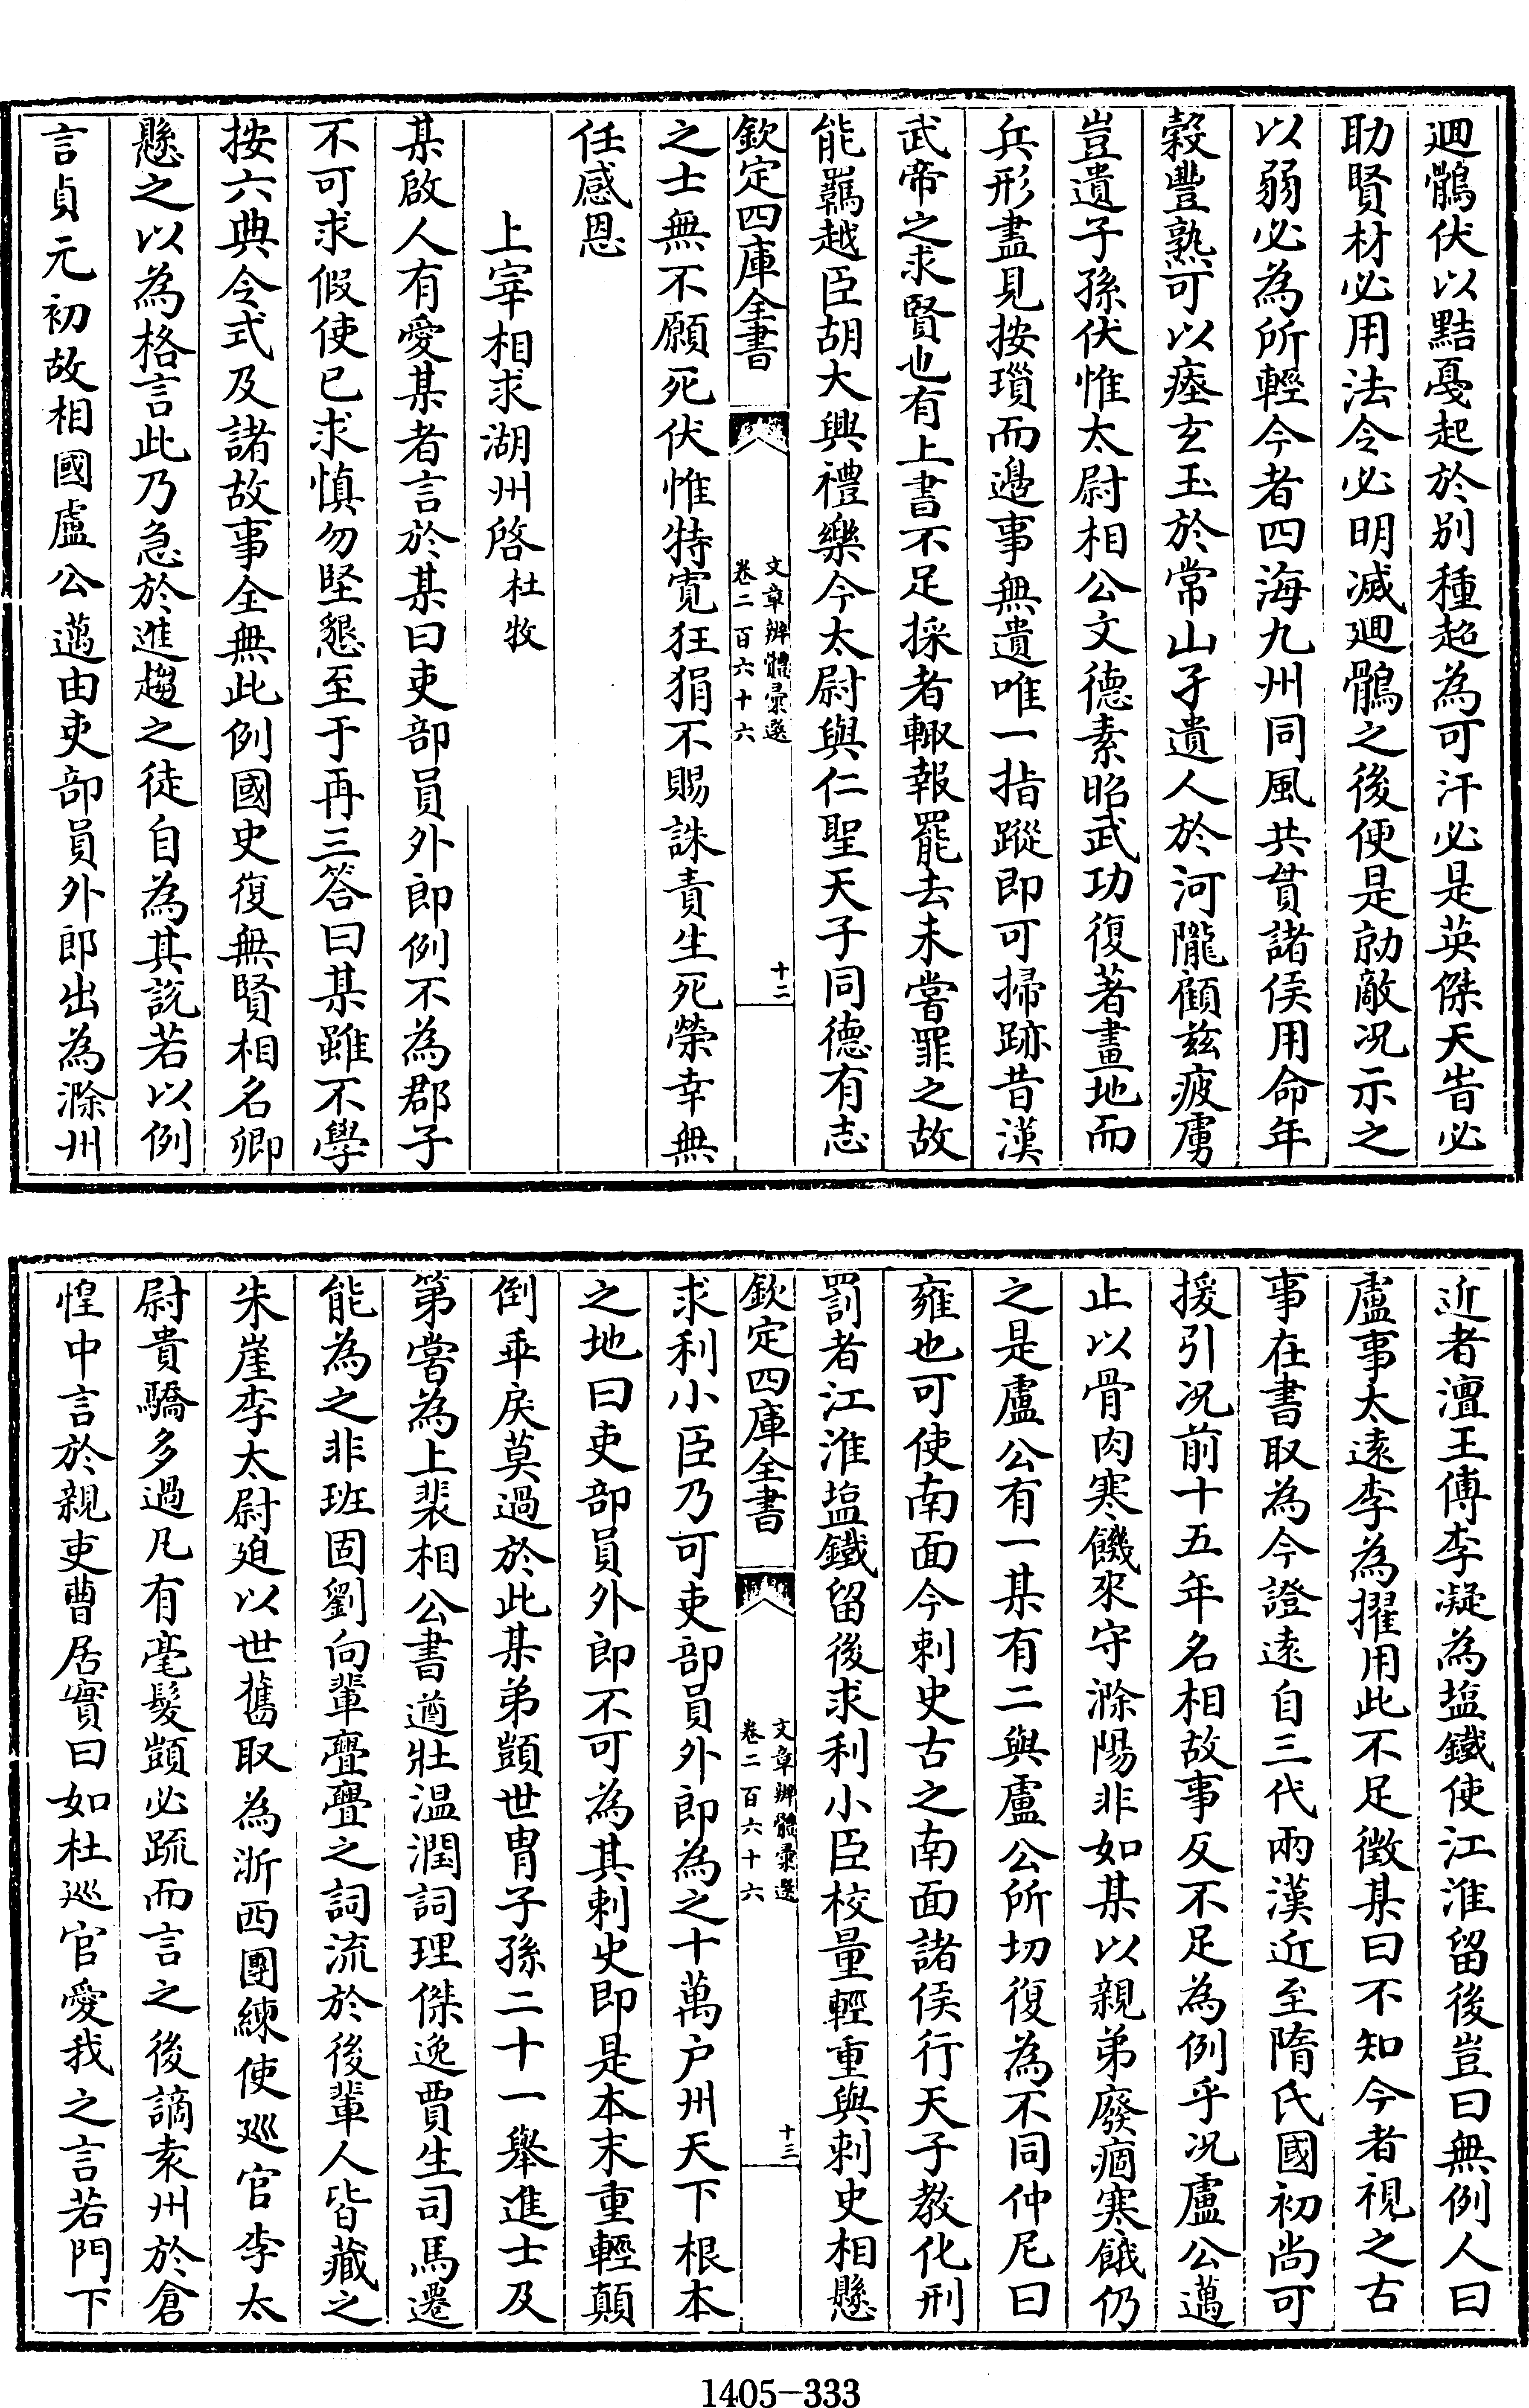 迴鶻伏以黠戛起於别種超為可汗必是英傑天㫖必
助賢材必用法令必明滅迴鶻之後便是勍敵况示之
以弱必為所輕今者四海九州同風共貫諸侯用命年
榖豐熟可以瘞玄玉於常山孑遺人於河隴顧兹疲虜
豈遺子孫伏惟太尉相公文德素昭武功復著畫地而
兵形盡見按瑣而邊事無遺唯一指蹤即可掃跡昔漢
武帝之求賢也有上書不足採者輙報罷去未嘗罪之故
能羈越臣胡大興禮樂今太尉與仁聖天子同德有志
欽定四庫全書 文章辨體彚選 卷二百六十六 十二
之士無不願死伏惟特寛狂狷不賜誅責生死榮幸無
任感恩
上宰相求湖州啓 杜牧
某啟人有愛某者言於某曰吏部員外郎例不為郡子
不可求假使已求慎勿堅懇至于再三答曰某雖不學
按六典令式及諸故事全無此例國史復無賢相名卿
懸之以為格言此乃急於進趨之徒自為其說若以例
言貞元初故相國盧公邁由吏部員外郎出為滁州
近者澶王傅李凝為塩鐵使江淮留後豈曰無例人曰
盧事太遠李為擢用此不足徴某曰不知今者視之古
事在書取為今證遠自三代兩漢近至隋氏國初尚可
援引况前十五年名相故事反不足為例乎况盧公邁
止以骨肉寒饑來守滁陽非如某以親弟廢痼寒餓仍
之是盧公有一某有二與盧公所切復為不同仲尼曰
雍也可使南面今刺史古之南面諸侯行天子教化刑
罰者江淮塩鐵留後求利小臣校量輕重與刺史相懸
欽定四庫全書 文章辨體彚選 卷二百六十六 十三
求利小臣乃可吏部員外郎為之十萬户州天下根本
之地曰吏部員外郎不可為其刺史即是本末重輕顛
倒乖戾莫過於此某弟顗世胄子孫二十一舉進士及
第嘗為上裴相公書遒壯温潤詞理傑逸賈生司馬遷
能為之非班固劉向輩亹亹之詞流於後輩人皆藏之
朱崖李太尉廹以世舊取為浙西團練使廵官李太
尉貴驕多過凡有毫髮顗必疏而言之後謫袁州於倉
惶中言於親吏曹居實曰如杜廵官愛我之言若門下
1405-333